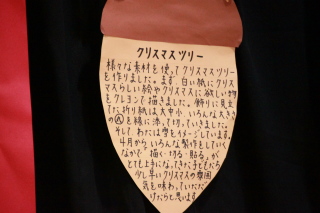 クリスマスツリー
様々な素材を使ってクリスマスツリー
を作りました。まず、白い紙にクリス
マスらしい絵やクリスマスに欲しい物
をクレヨンで描きました。飾りに見立
てた折り紙は大中小、いろんな大きさ
の を線に添って切っていきました。
そして、わたは雪をイメージしています。
4月からいろんな製作をしていく
なかで「描く・切る・貼る」が
とても上手になってきた子どもたち
少し早いクリスマスの雰囲
気を味わっていただ
けたらと思います。